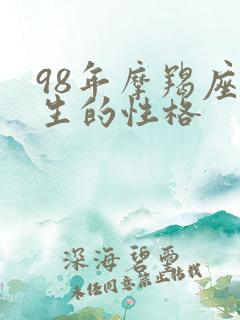 98年摩羯座
生的性格
深海碧雪
未经同意禁止转载